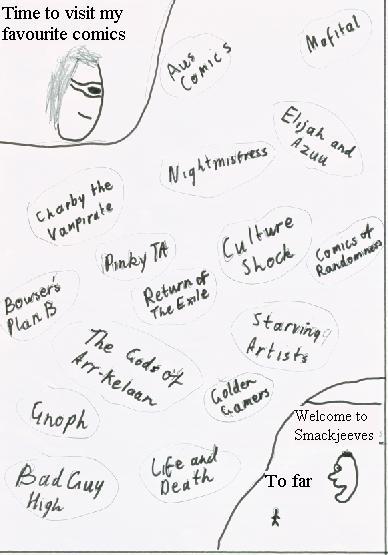 Time to visit my
favourite comics
Aus
Comics
Mofital
Elijah and
Azuu
Nightmistress
Charby the
Vampirate
Pinky TA
Culture
Shock
Comics of
Randomness
Return of
The Exile
Bowser's
Plan B
Starving
Artists
The Gods of
Arr-Kelaan
Golden
Gamers
Gnoph
Welcome to
Smackjeeves
Life and
Death
Bad Guy
High
To far